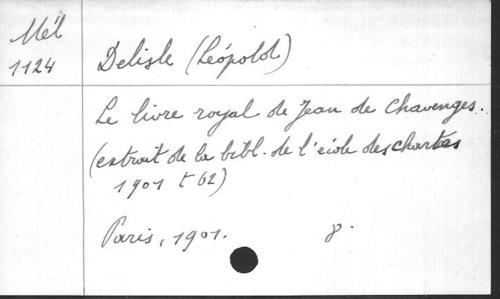 Mél
1124
Delisle (Léopold)
Le livre royal de Jean de Chavenges.
(extrait de la bibl. de l'école des chartes
1901 t 62)
Paris, 1901. 8°